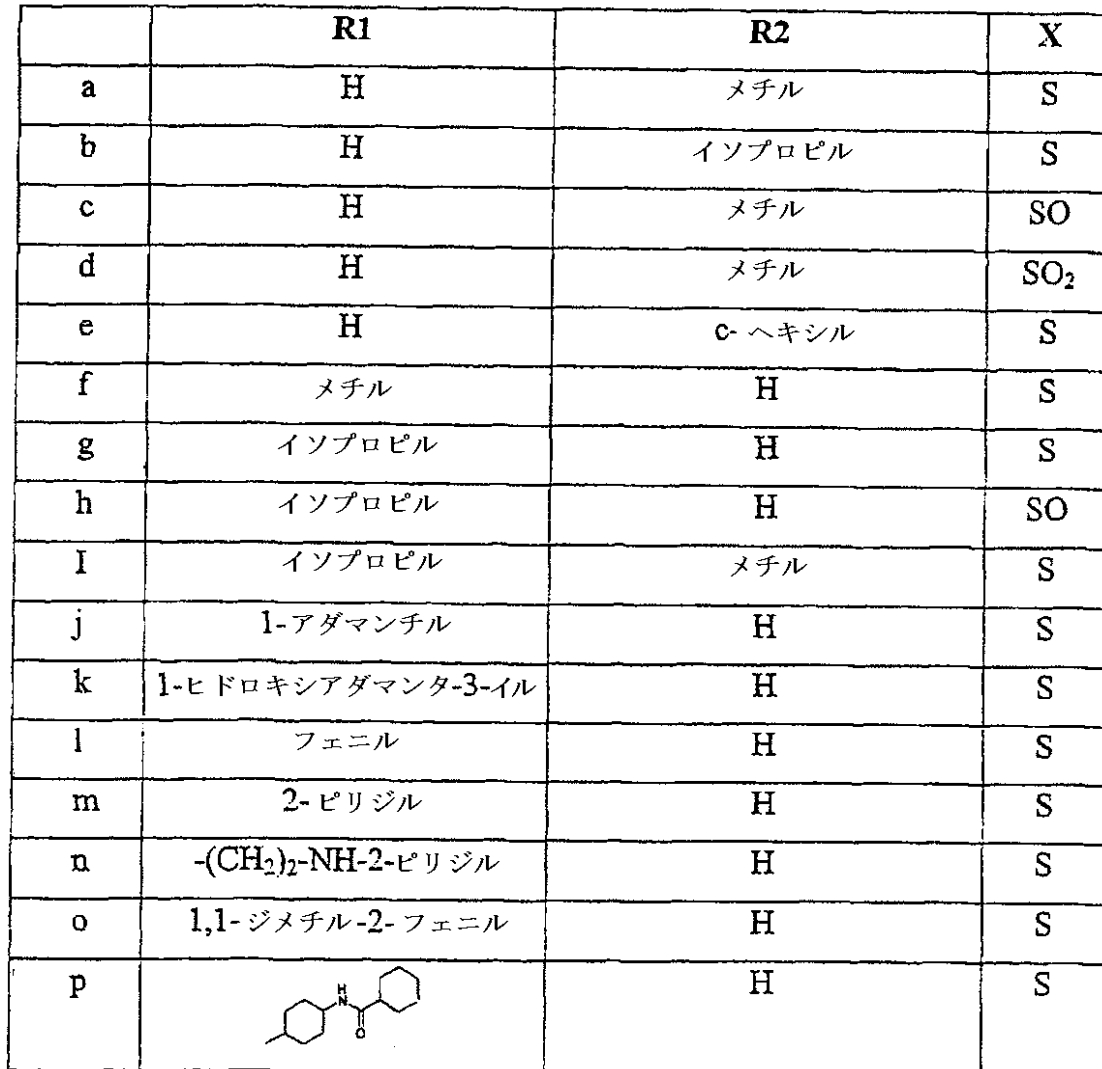 R1 R2 X
a H メチル S
b H イソプロピル S
c H メチル SO
d H メチル SO₂
e H c-ヘキシル S
f メチル H S
g イソプロピル H S
h イソプロピル H SO
I イソプロピル メチル S
j 1-アダマンチル H S
k 1-ヒドロキシアダマンタ-3-イル H S
l フェニル H S
m 2-ピリジル H S
n -(CH₂)₂-NH-2-ピリジル H S
o 1,1-ジメチル-2-フェニル H S
p H N O H S